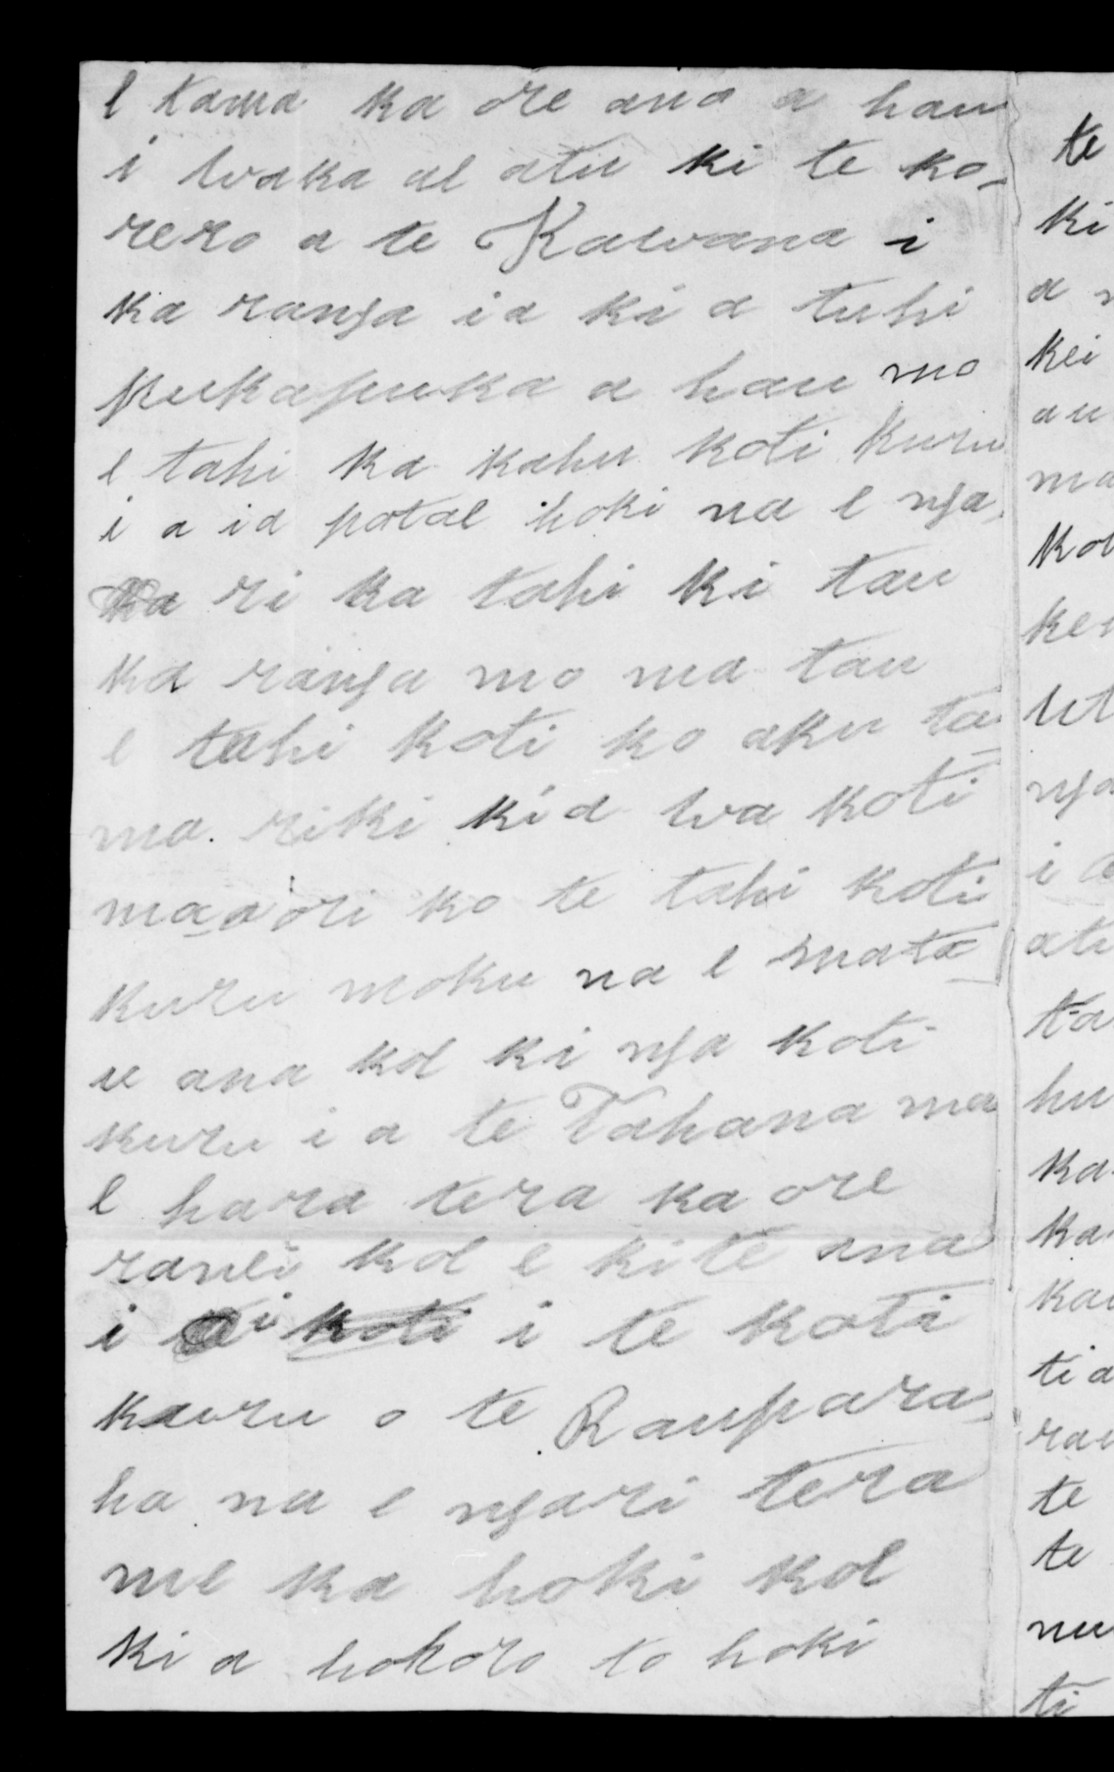 e tama ka ore ano a hau
i waka ae atu ki te ko-
rero a te Kawana i
ka ranga ia ki a tuhi
pukapuka a hau mo
e tahi ka kahu koti kuru
i a ia potae hoki na e nga
ri ka tahi ki tau
ka ranga mo ma tau
e tahi koti ko aku ta
ma riki kia wa koti
maaori ko te tahi koti
kuru moku na e mata
u ana koe ki nga koti
kuru i a te Tahana ma
e hara tera ka ore
ranei koe e kite ana
i i koti i te koti
kuru o te Raupara
ha na e ngari tera
me ka hoki koe
ki a hohoro to hoki
te
ki
a
kei
au
ma
kol
nga
i
atu
ta
hu
ka
ka
kau
ti a
rau
te
te
nu
ti